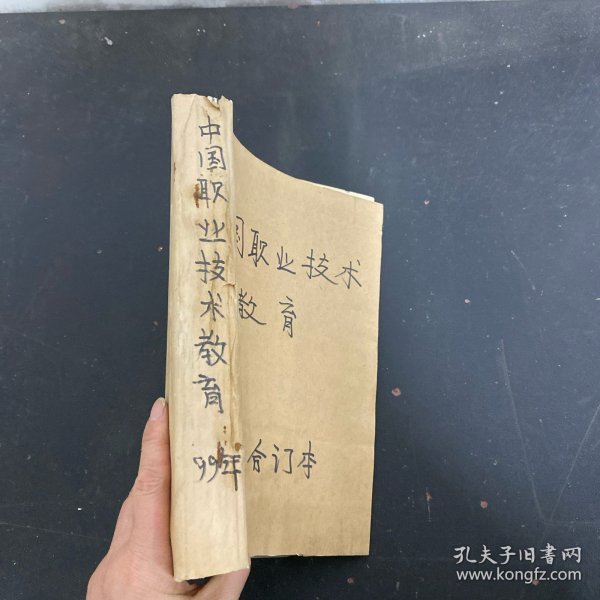 中国职业技术教育
99年
国职业技术
教育
合订本
孔夫子旧书网
www.kongfz.com